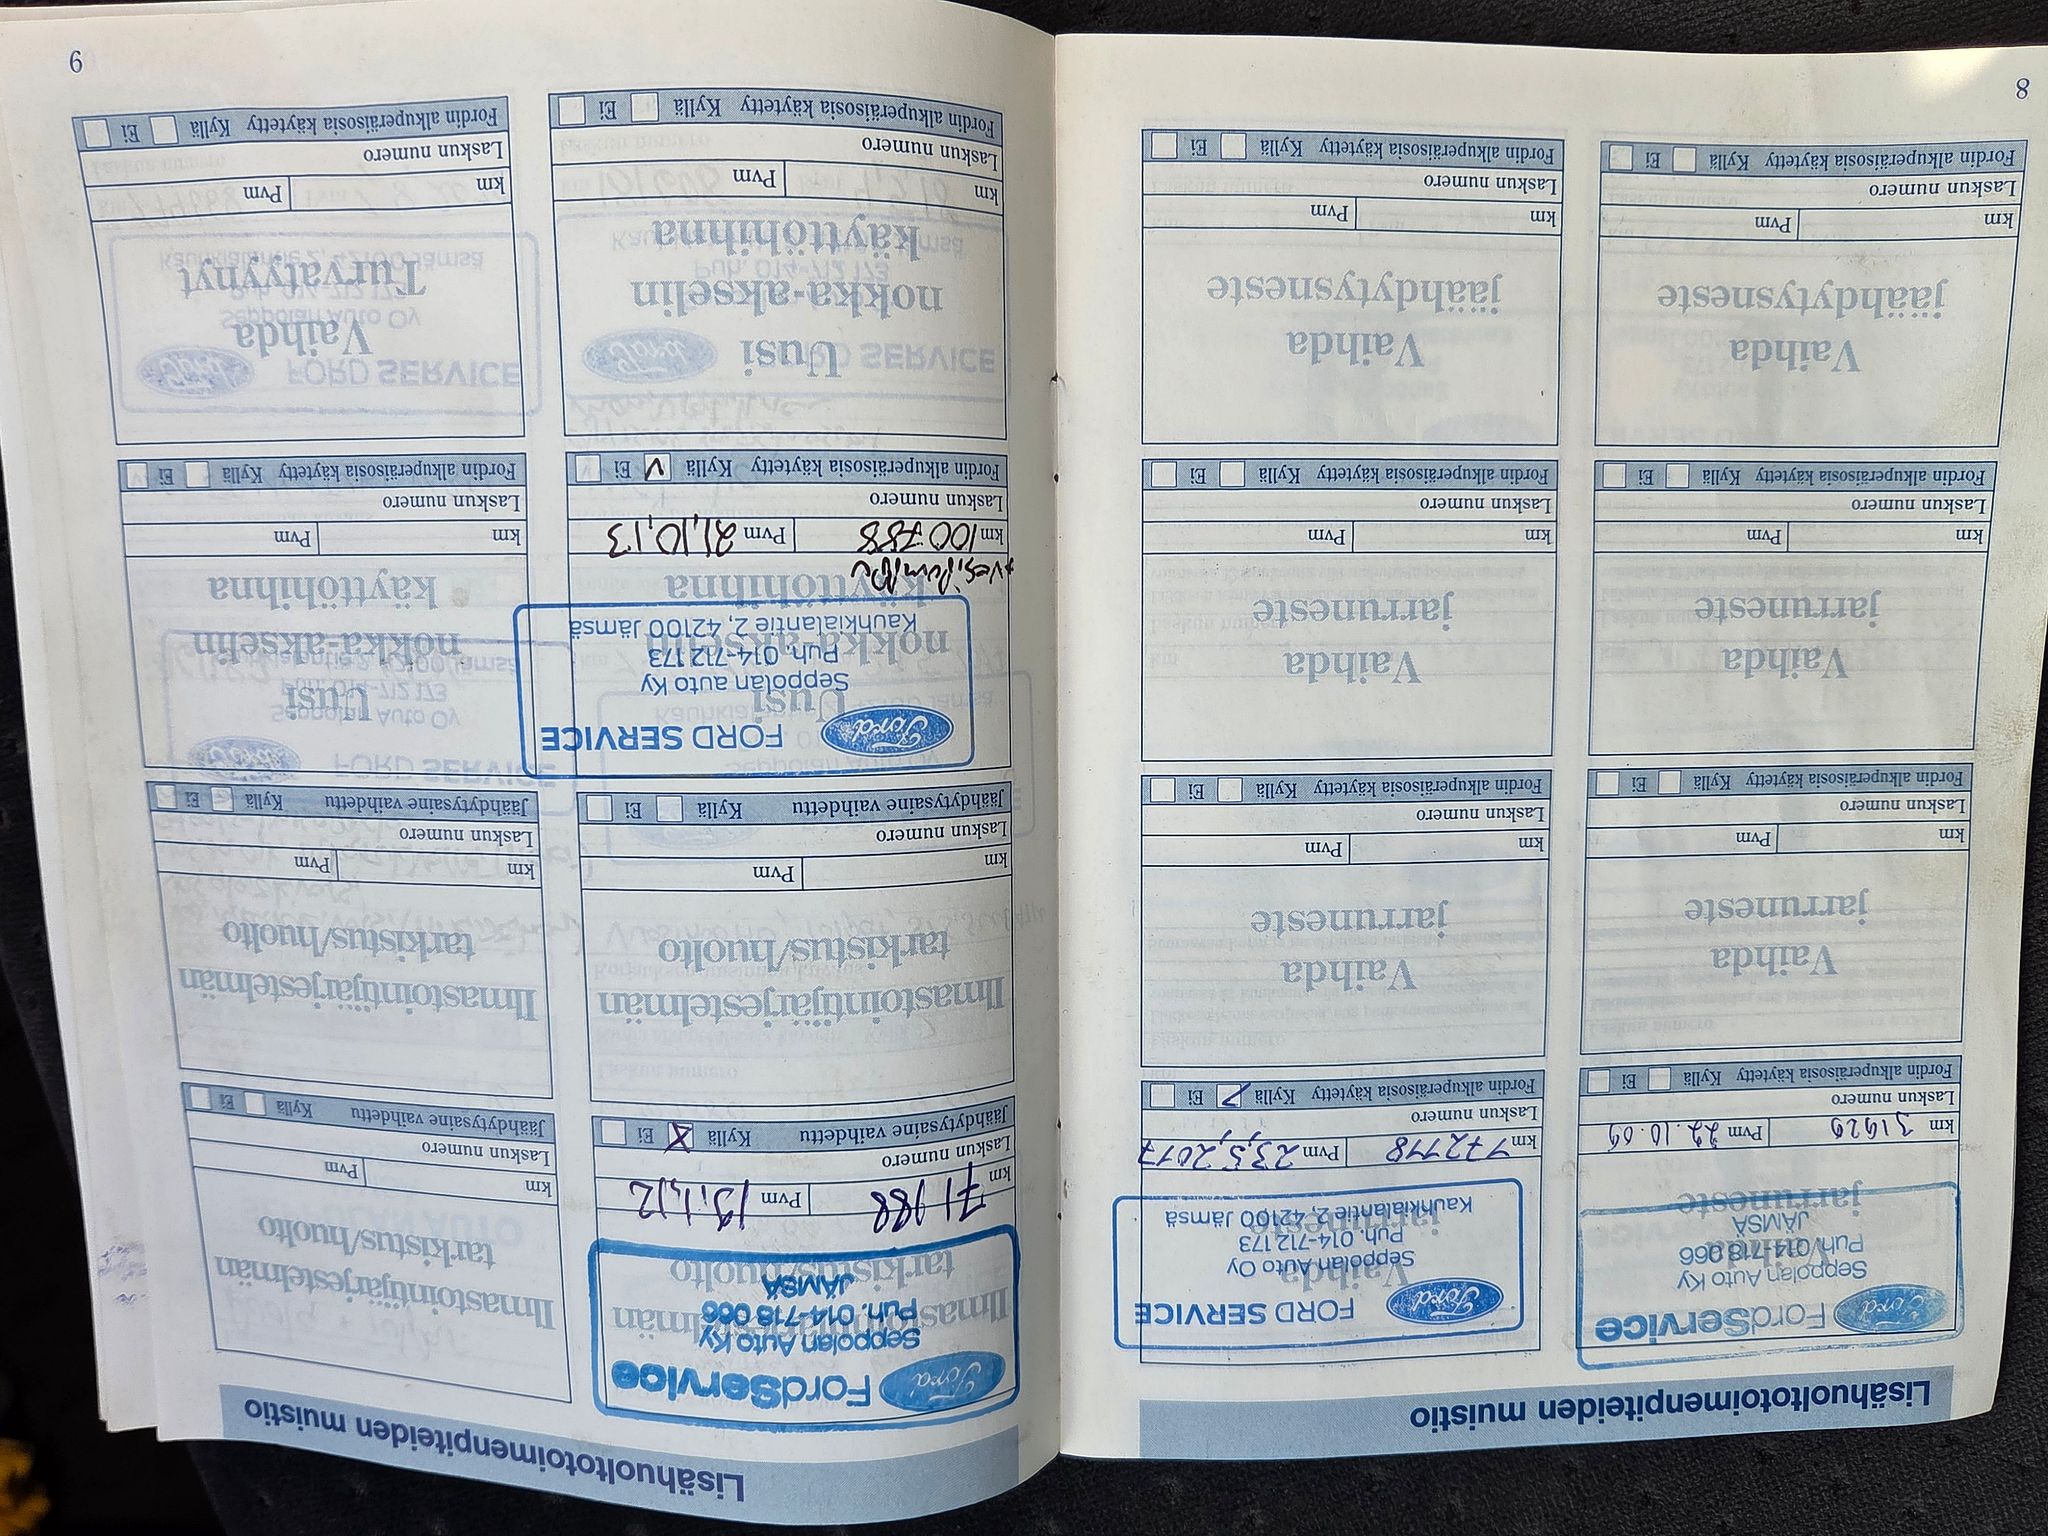 Lisähuoltotoimenpiteiden muistio
Ford FordService
Seppolan Auto Ky
Puh. 014-718 066
JÄMSÄ
Vaihda
jarruneste
km 31929 Pvm 22.10.09
Laskun numero
Fordin alkuperäisosia käytetty Kyllä Ei
Ford FORD SERVICE
Seppolan Auto Oy
Puh. 014-712 173
Kauhkialantie 2, 42100 Jämsä
Vaihda
jarruneste
km Pvm 23,5,2017
Laskun numero
Fordin alkuperäisosia käytetty Kyllä Ei
Vaihda
jarruneste
km Pvm
Laskun numero
Fordin alkuperäisosia käytetty Kyllä Ei
Vaihda
jarruneste
km Pvm
Laskun numero
Fordin alkuperäisosia käytetty Kyllä Ei
Vaihda
jarruneste
km Pvm
Laskun numero
Fordin alkuperäisosia käytetty Kyllä Ei
Vaihda
jarruneste
km Pvm
Laskun numero
Fordin alkuperäisosia käytetty Kyllä Ei
Vaihda
jäähdytysneste
km Pvm
Laskun numero
Fordin alkuperäisosia käytetty Kyllä Ei
Vaihda
jäähdytysneste
km Pvm
Laskun numero
Fordin alkuperäisosia käytetty Kyllä Ei
8
Lisähuoltotoimenpiteiden muistio
Ford FordService
Seppolan Auto Ky
Puh. 014-718 066
JÄMSÄ
Ilmastointijärjestelmän
tarkistus/huolto
km Pvm 13.1.12
Laskun numero
Jäähdytysaine vaihdettu Kyllä X Ei
Ilmastointijärjestelmän
tarkistus/huolto
km Pvm
Laskun numero
Jäähdytysaine vaihdettu Kyllä Ei
Ilmastointijärjestelmän
tarkistus/huolto
km Pvm
Laskun numero
Jäähdytysaine vaihdettu Kyllä Ei
Ilmastointijärjestelmän
tarkistus/huolto
km Pvm
Laskun numero
Jäähdytysaine vaihdettu Kyllä Ei
Ford FORD SERVICE
Seppolan auto Ky
Puh. 014-712 173
Kauhkialantie 2, 42100 Jämsä
Uusi
nokka-akselin
käyttöhihna
+vesipumppu
km 100788 Pvm 21,10,13
Laskun numero
Fordin alkuperäisosia käytetty Kyllä V Ei
Uusi
nokka-akselin
käyttöhihna
km Pvm
Laskun numero
Fordin alkuperäisosia käytetty Kyllä Ei
Uusi
nokka-akselin
käyttöhihna
km Pvm
Laskun numero
Fordin alkuperäisosia käytetty Kyllä Ei
Vaihda
Turvatyynyt
km Pvm
Laskun numero
Fordin alkuperäisosia käytetty Kyllä Ei
9